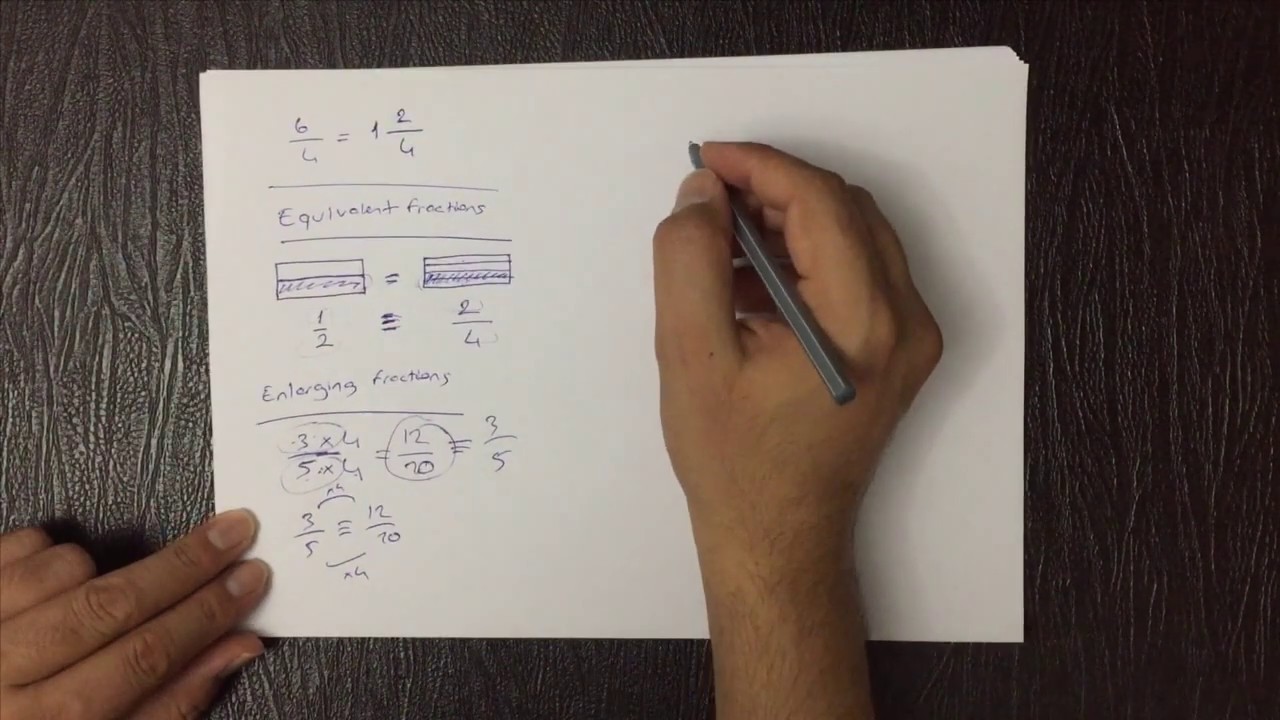 6/4 = 1 2/4
Equivalent fractions
=
1/2 ≡ 2/4
Enlarging fractions
3·x4/5·x4 = 12/20 ≡ 3/5
x4
3/5 ≡ 12/20
x4